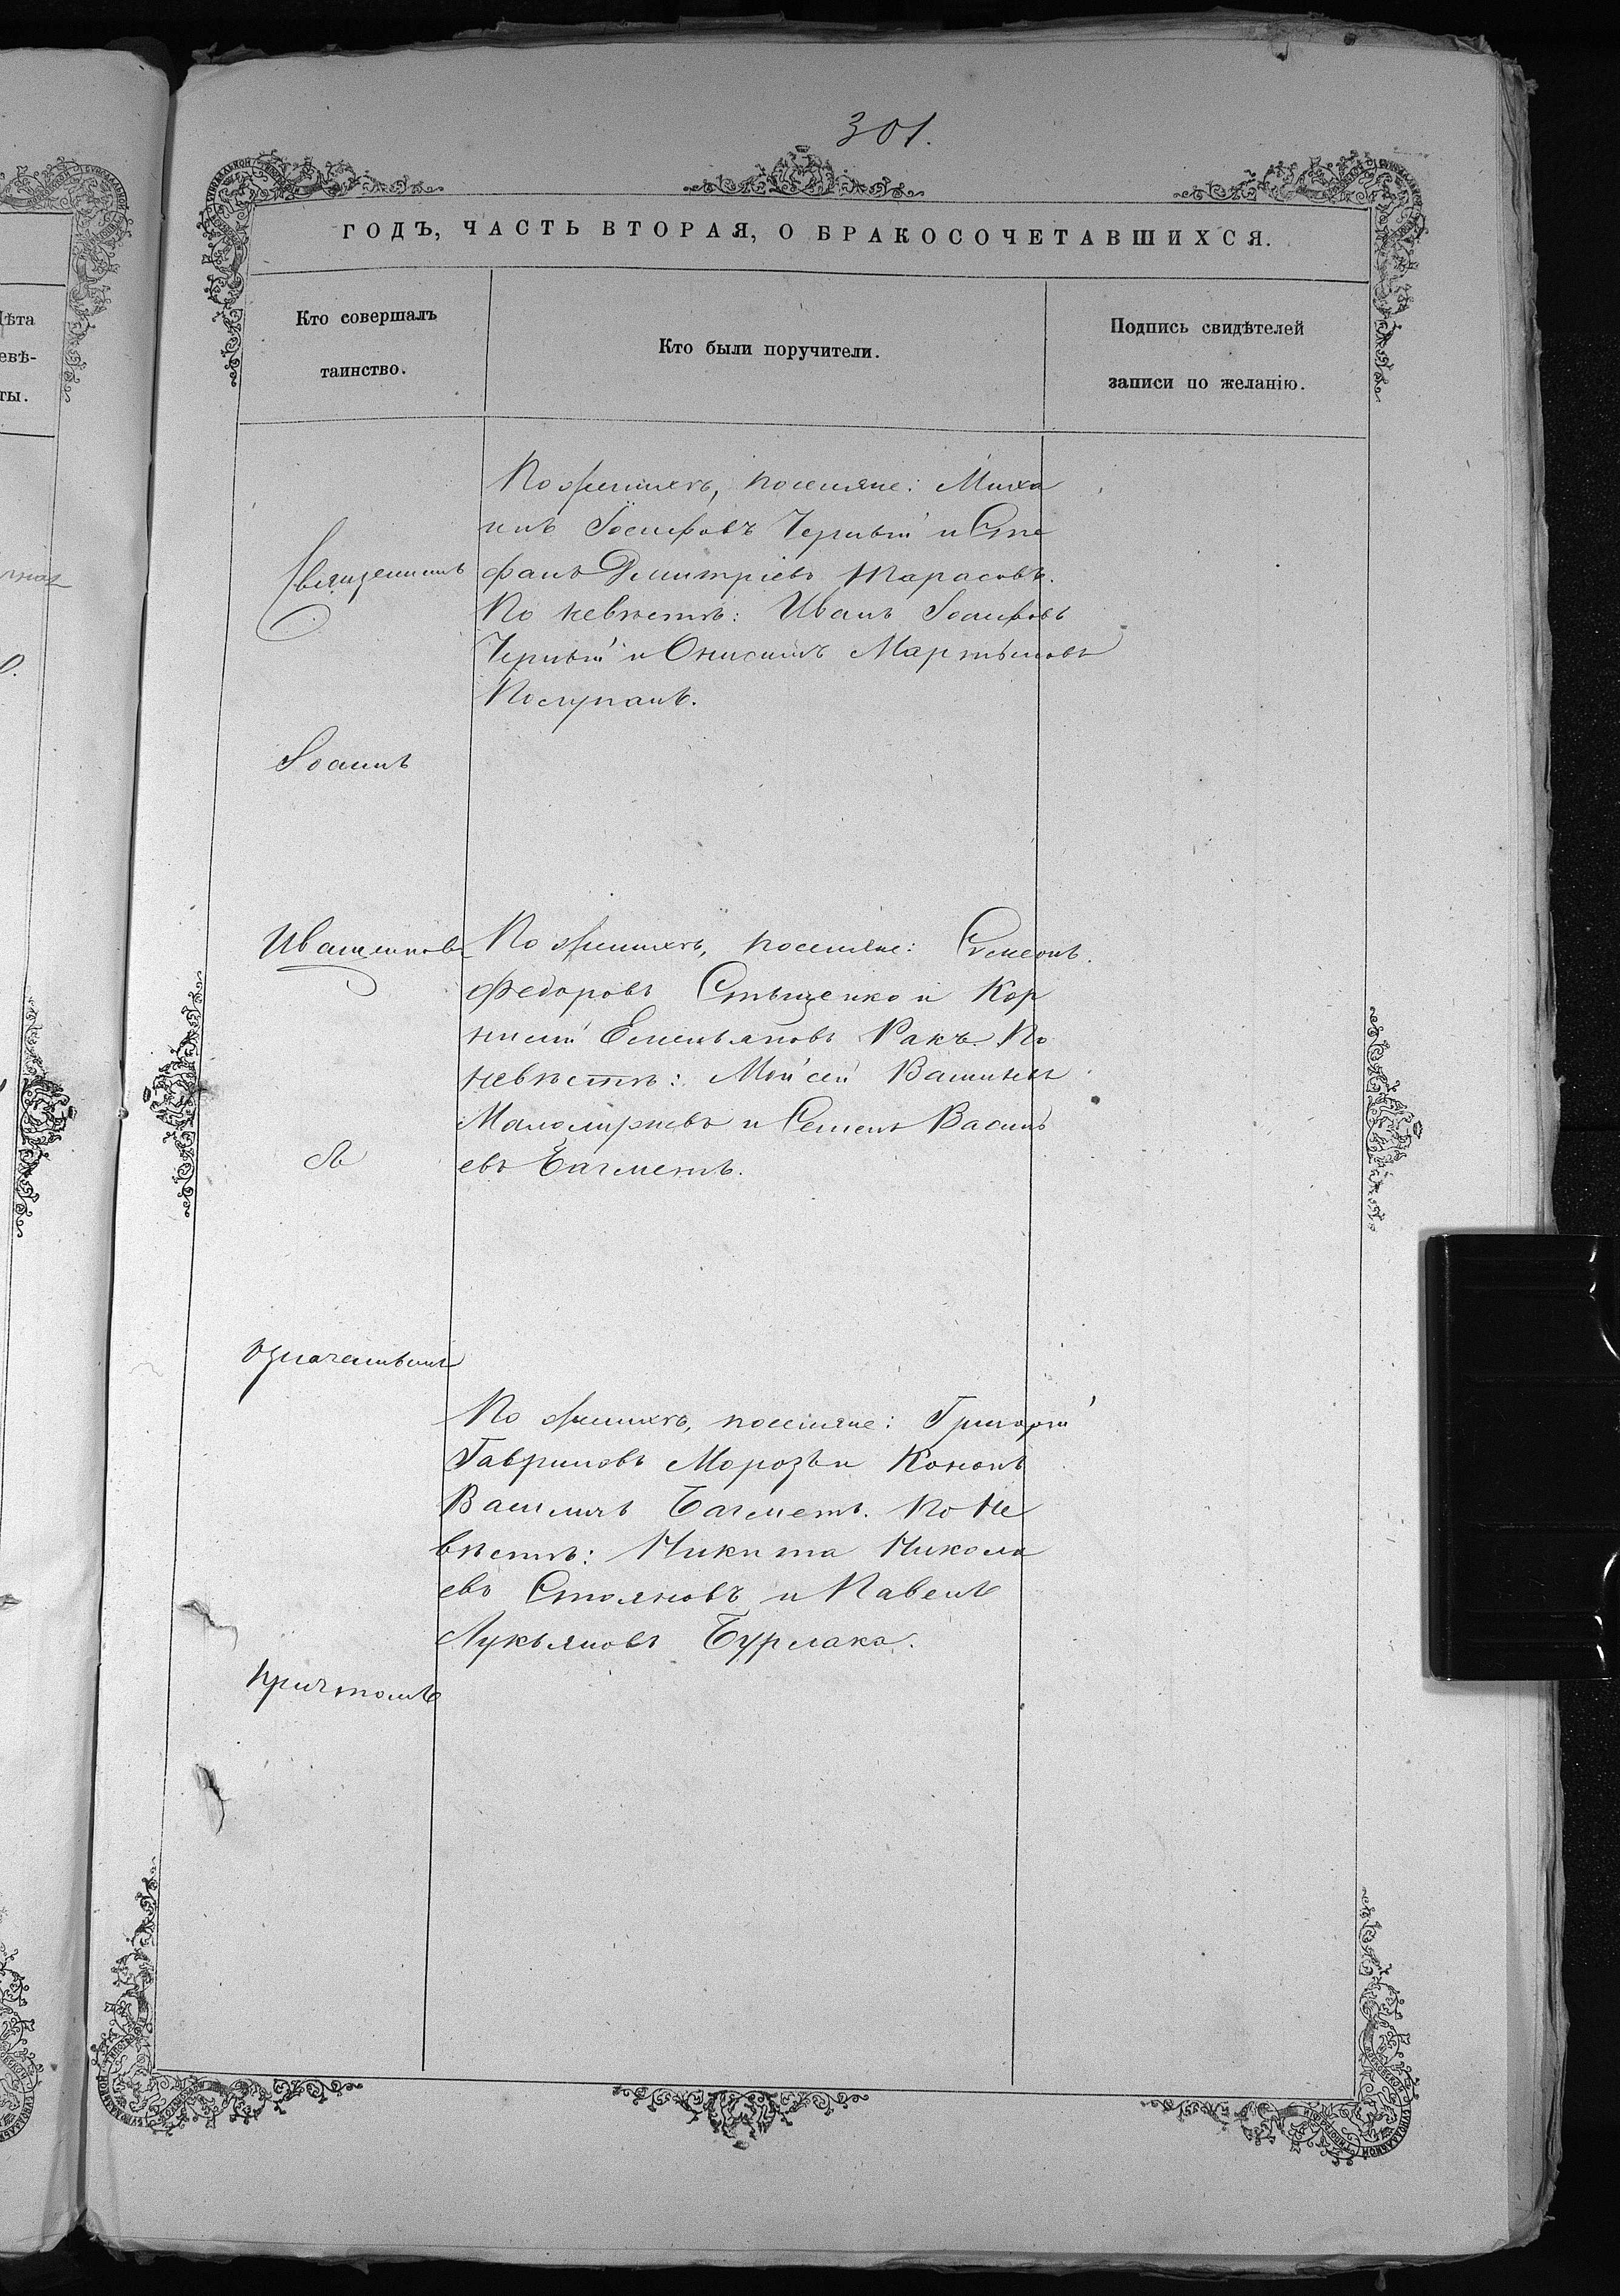 301.
ГОДЪ, ЧАСТЬ ВТОРАЯ, О БРАКОСОЧЕТАВШИХСЯ.
Кто совершалъ
таинство.
Кто были поручители.
Подпись свидѣтелей
записи по желанію.
Священникъ
Іоаннъ
Иващенковъ
съ
означеннымъ
причтомъ
По женихѣ, поселяне: Миха
илъ Іосифовъ Черный и Сте
фанъ Димитріевъ Тарасовъ.
По невѣстѣ: Иванъ Іосифовъ
Черный и Онисимъ Мартыновъ
Послупалъ.
По женихѣ, поселяне: Симеонъ
Федоровъ Стыценко и Кор
нилій Емельяновъ Ракъ. По
невѣстѣ: Мойсей
и Семенъ Василь
евъ Багметъ.
По женихѣ, поселяне: Григорій
Гавриловъ Морозъ и Кононъ
Василичъ Багметъ. По не
вѣстѣ: Никита Никола
евъ Столновъ и Павелъ
Лукьяновъ Бурлака.
лѣта
евѣ-
ты.